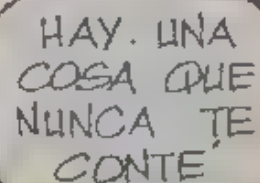 HAY. UNA
COSA QUE
NUNCA TE
CONTÉ